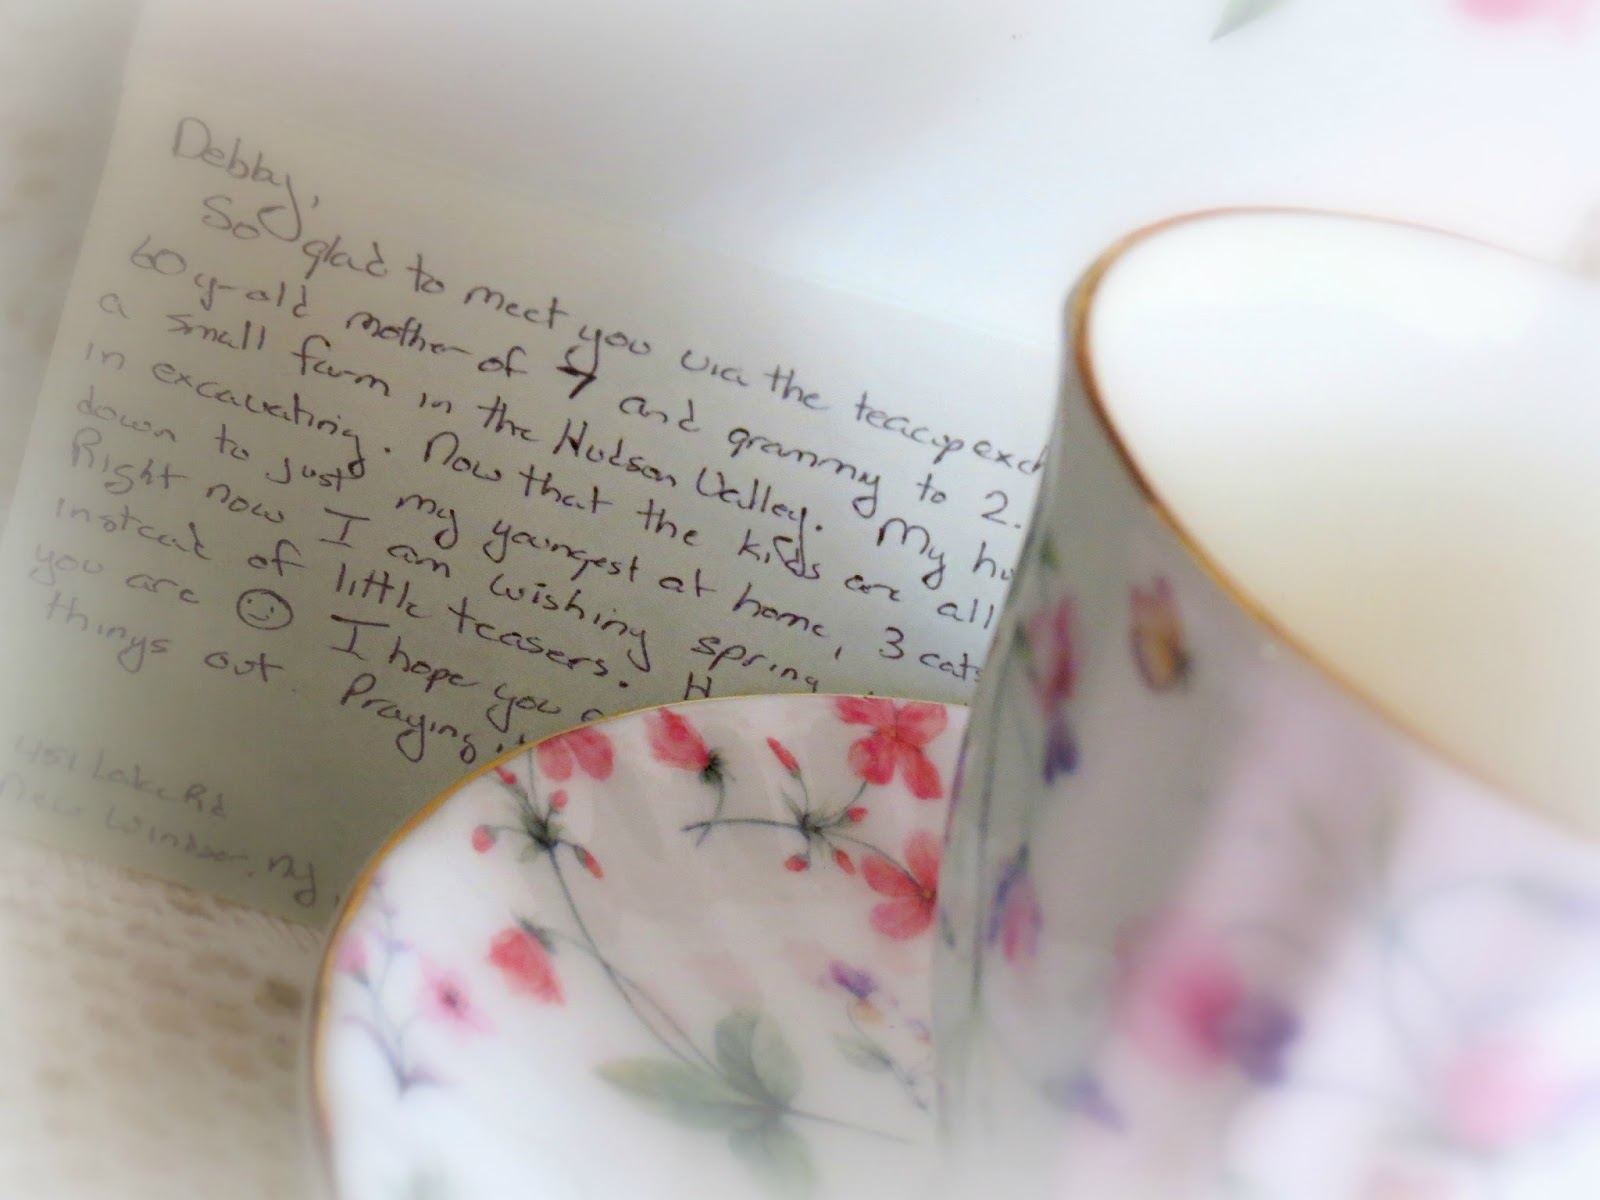 Debby,
So glad to meet you via the teacup exch
60 yr-old mother of 7 and grammy to 2.
a small farm in the Hudson Valley. My hu
in excavating. Now that the kids are all
down to just my youngest at home, 3 cats
Right now I am wishing spring
instead of little teasers. H
you are ☺ I hope you a
things out. Praying..
451 Lake Rd
New Windsor, Ny